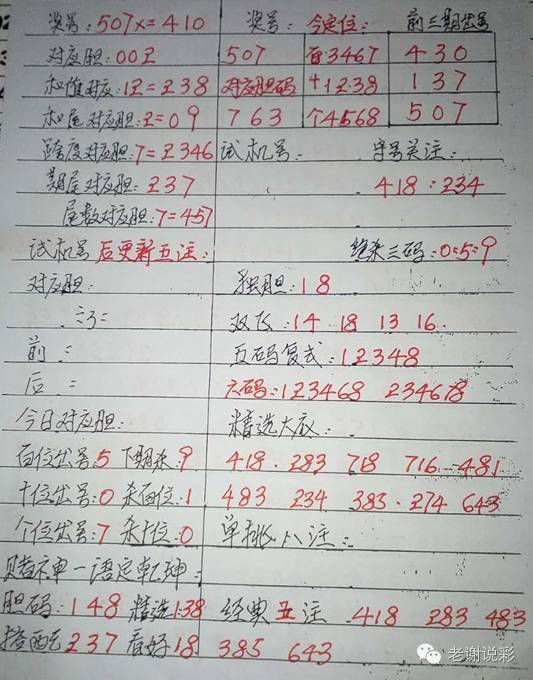 奖号:507x=410 奖号: 今定位: 前三期出号
对应胆:00又 507 百3467 430
和值对应:12=238 对应胆码 十1238 137
和尾对应胆:2=09 763 个4568 507
跨度对应胆:7=2346 试机号: 字号关注:
期尾对应胆:237 418:234
尾数对应胆:7=457
试机号后更新五注: 绝杀三码:0:5:9
对应胆: 独胆:18
双飞:14 18 13 16
前: 五码复式:12348
后: 六码:123468 234678
今日对应胆: 精选大底:
百位出号:5 下期杀:9 418. 283 718 716 481
十位出号:0 杀百位:1 483 234 383. 274 643
个位出号:7 杀十位:0 单挑八注:
赌神一语定乾坤:
胆码:148 精选138 经典五注 418 283 483
搭配237 看好18 385 643
老谢说彩